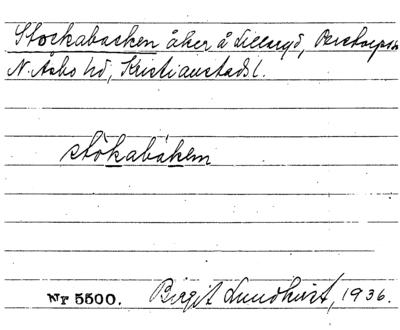 Stockabacken åker å Lillaryd, Perstorps sn
N. Åsbo hd, Kristianstads l.
stòkabákem
Nr 5500. Birgit Lundkvist, 1936.